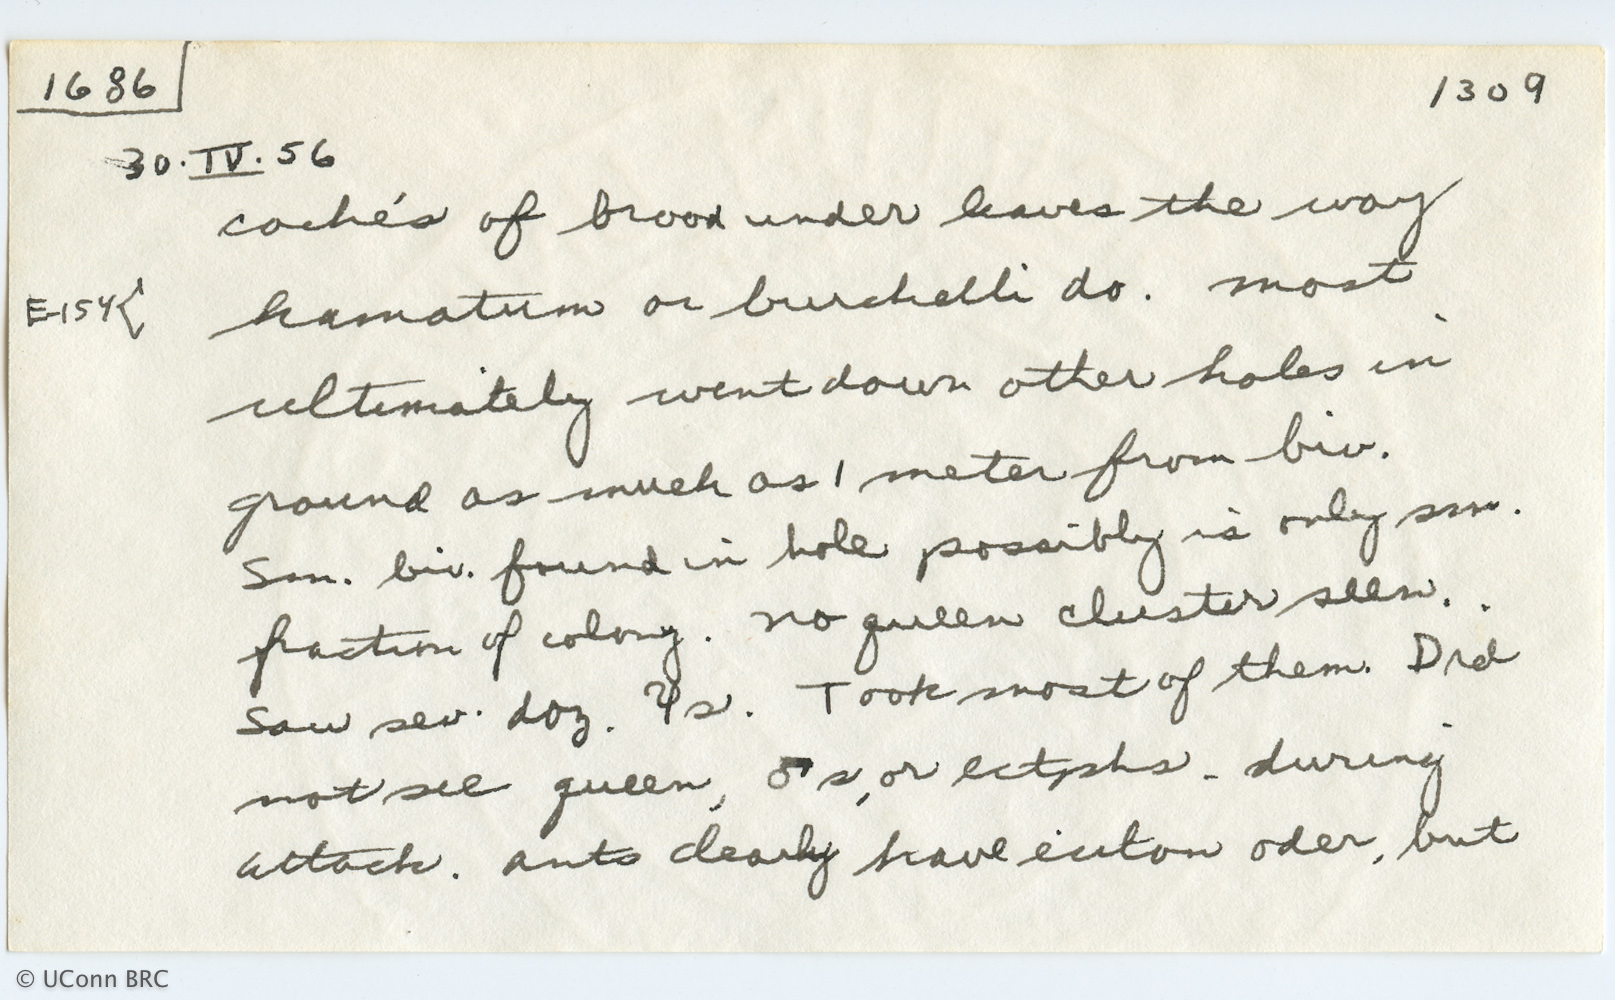 1686
1309
30.IV.56
cachés of brood under leaves the way
E-154{
hamatum or burchelli do. Most
ultimately went down other holes in
ground as much as 1 meter from biv.
Sm. biv. found in hole possibly is only sm.
fraction of colony. No queen cluster seen.
Saw sev. doz. ♃s. Took most of them. Did
not see queen, ♂s, or ectphs. during
attack. Ants clearly have eciton oder, but
© UConn BRC